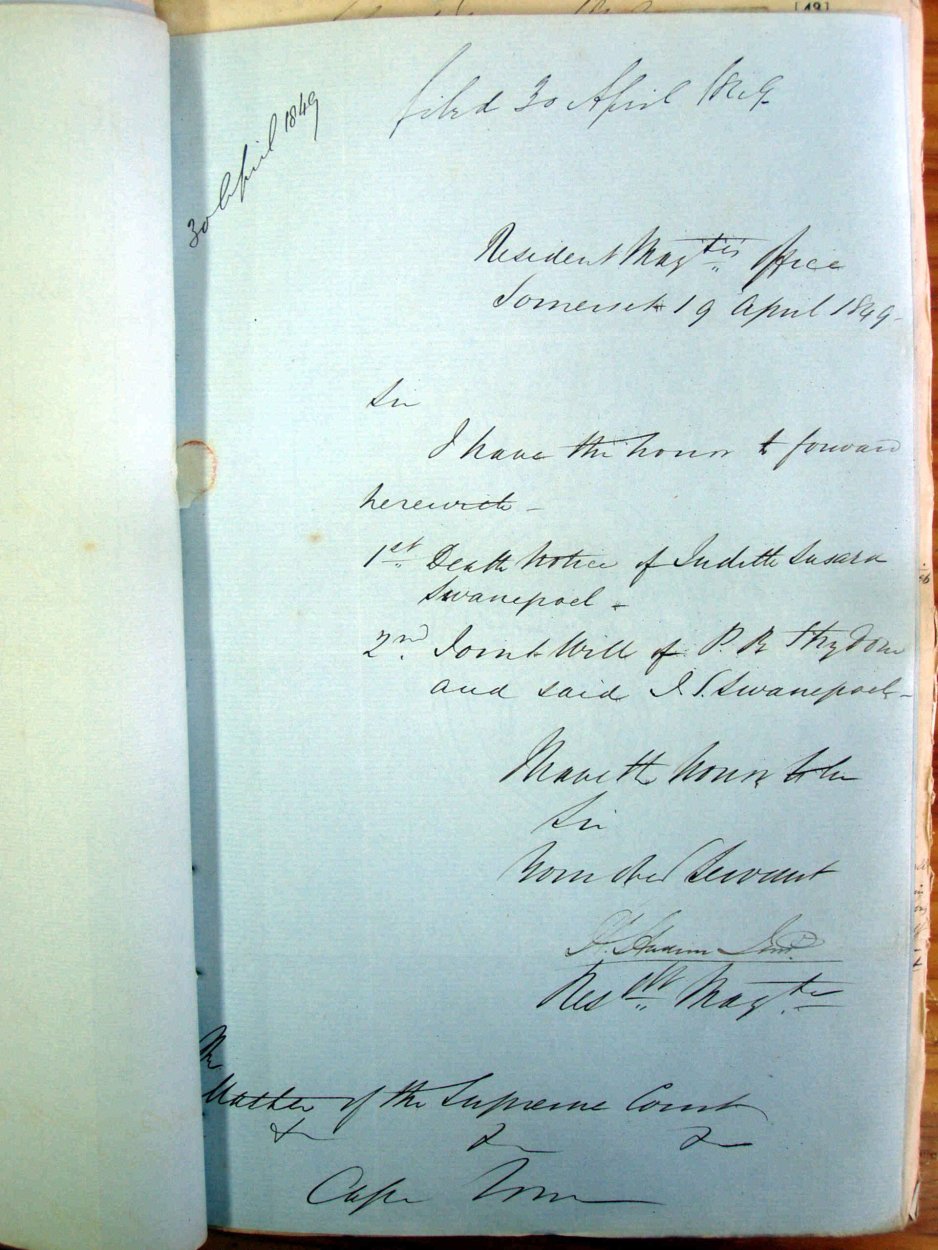 [49]
filed 30 April 1849
30 April 1849
Resident Mag^tes Office
Somerset 19 April 1849 -
Sir
I have the honor to forward
herewith -
1^st Death Notice of Judith Susara
Swanepoel -
2^nd Joint Will of P. R.
and said J. S. Swanepoel -
I have the honor to be
Sir
Your Obed^t Servant
Res^dt Mag^te
The
Master of the Supreme Court
&c &c &c
Cape Town